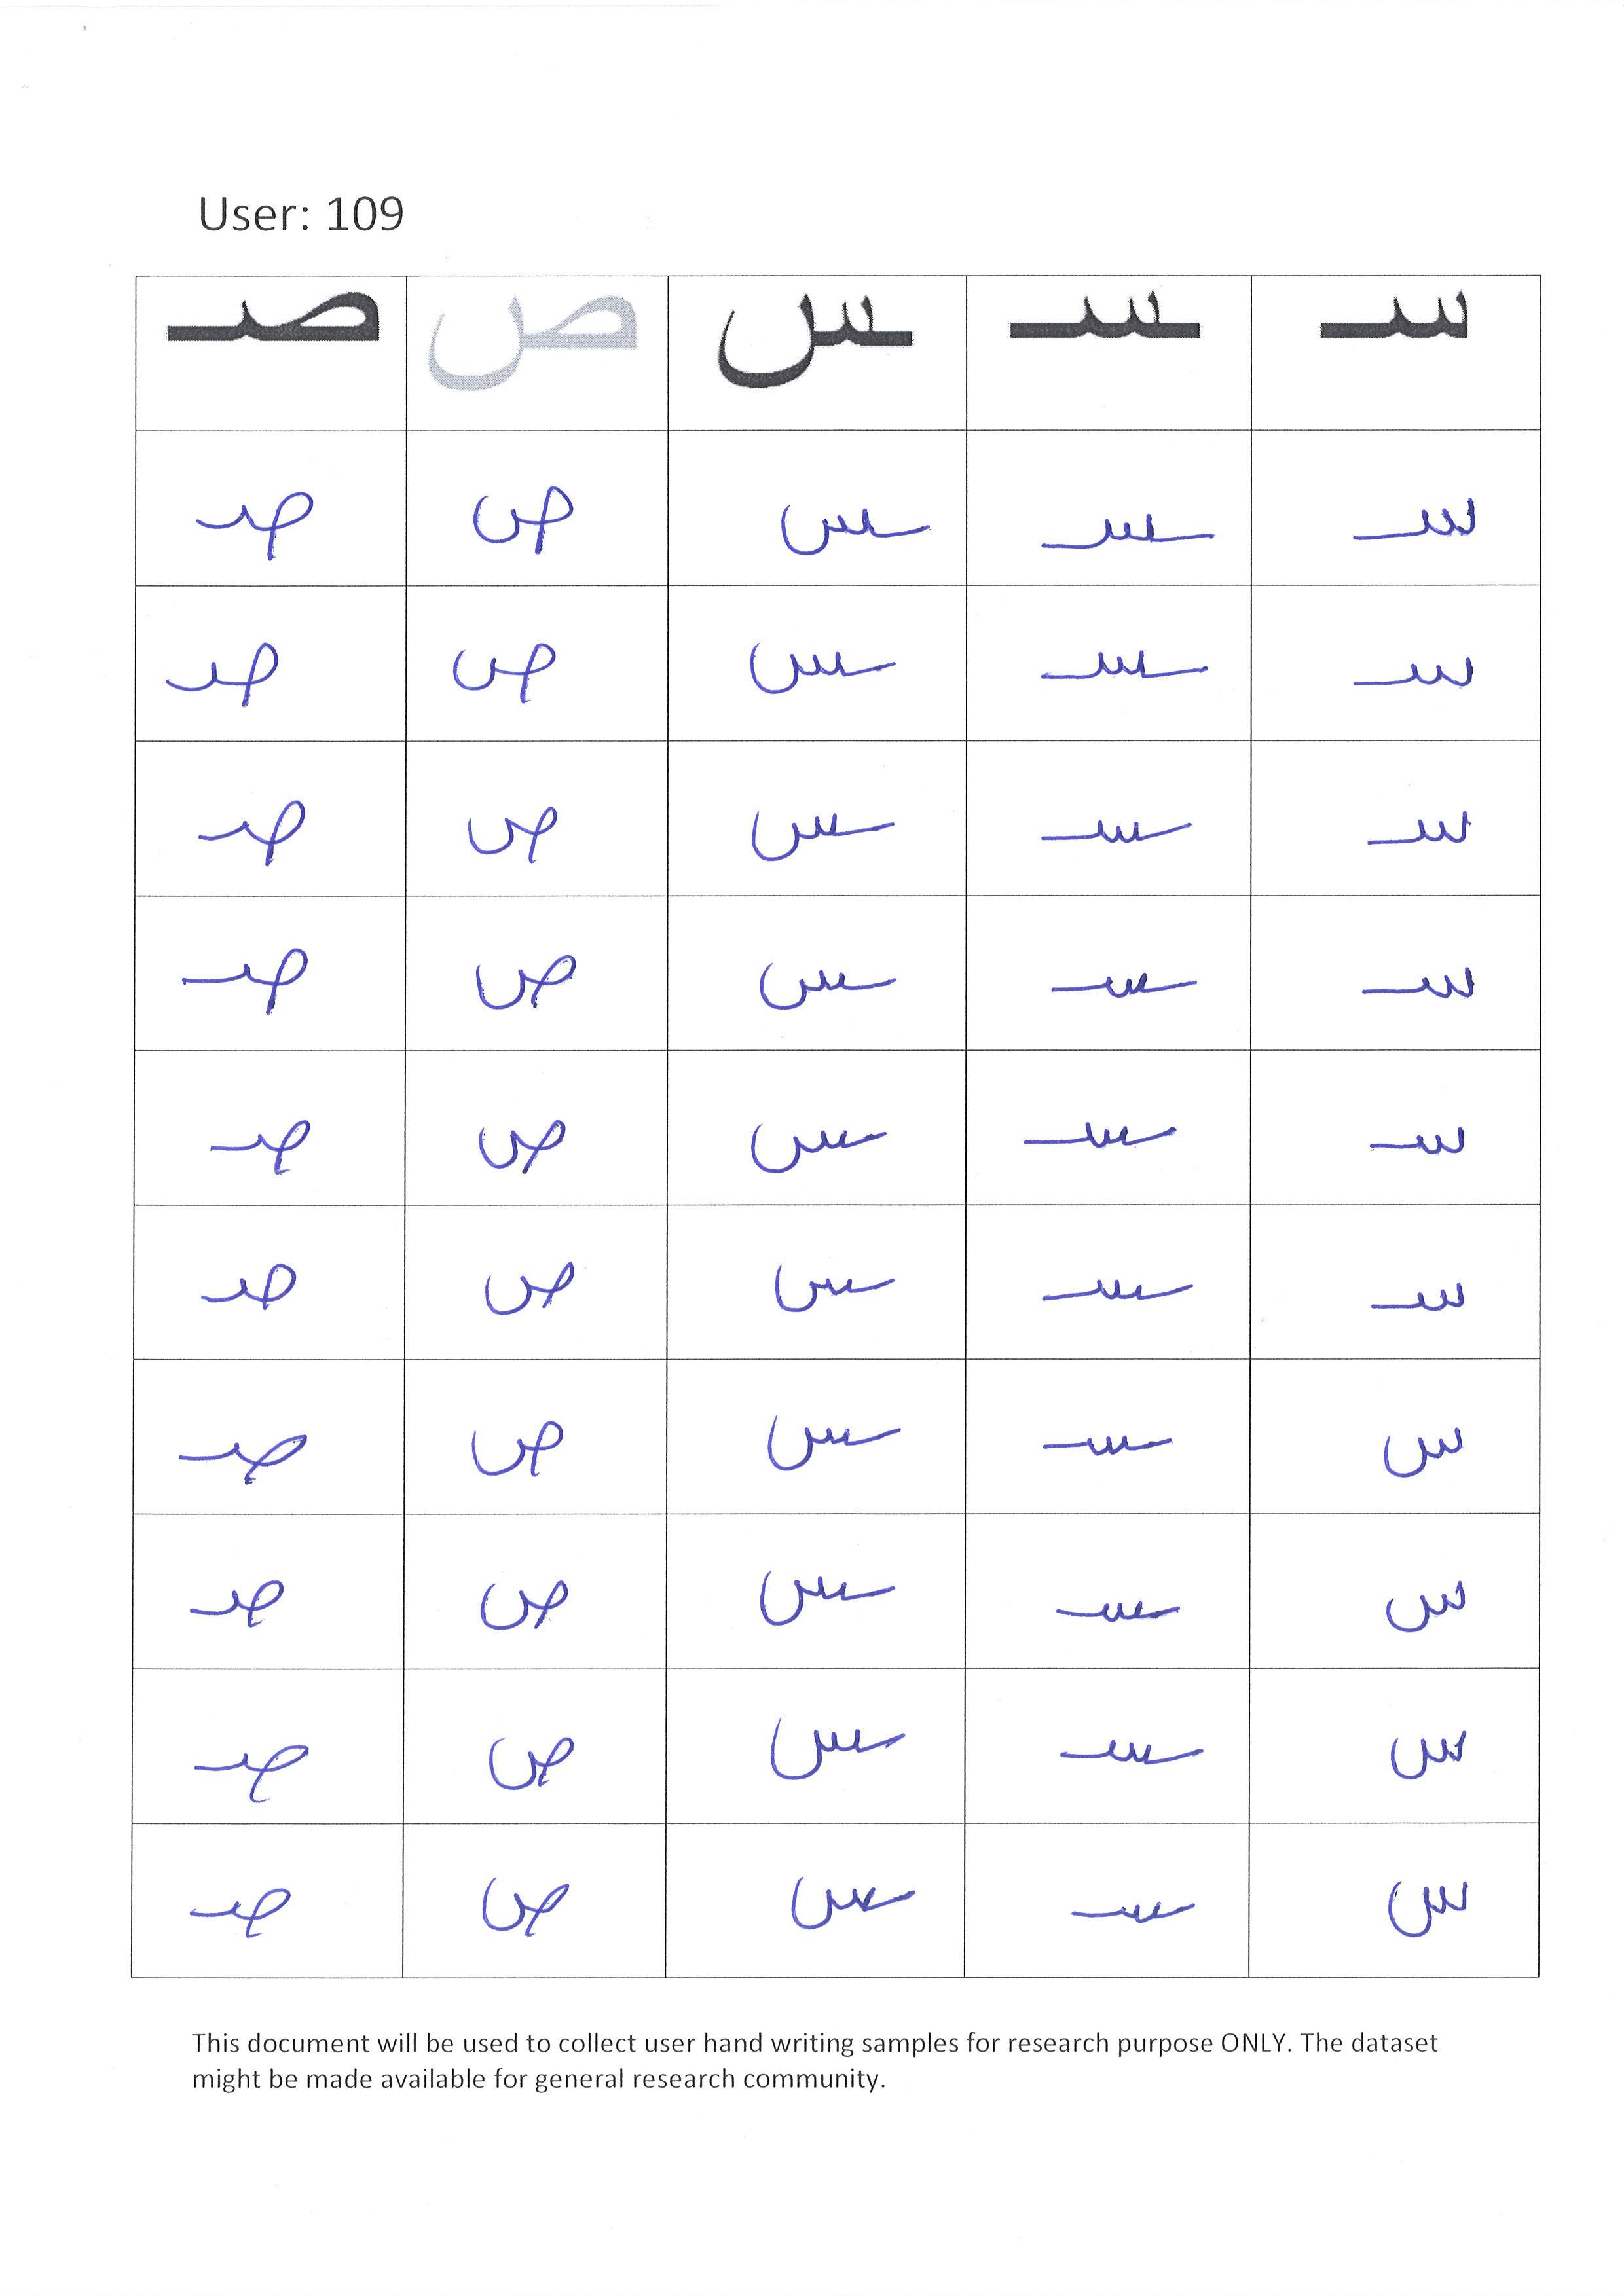 User: 109
سـ ـسـ ـس ص صـ
سـ ـسـ ـس ص صـ
سـ ـسـ ـس ص صـ
سـ ـسـ ـس ص صـ
سـ ـسـ ـس ص صـ
سـ ـسـ ـس ص صـ
سـ ـسـ ـس ص صـ
س ـسـ ـس ص صـ
س ـسـ ـس ص صـ
س ـسـ ـس ص صـ
س ـسـ ـس ص صـ
This document will be used to collect user hand writing samples for research purpose ONLY. The dataset
might be made available for general research community.